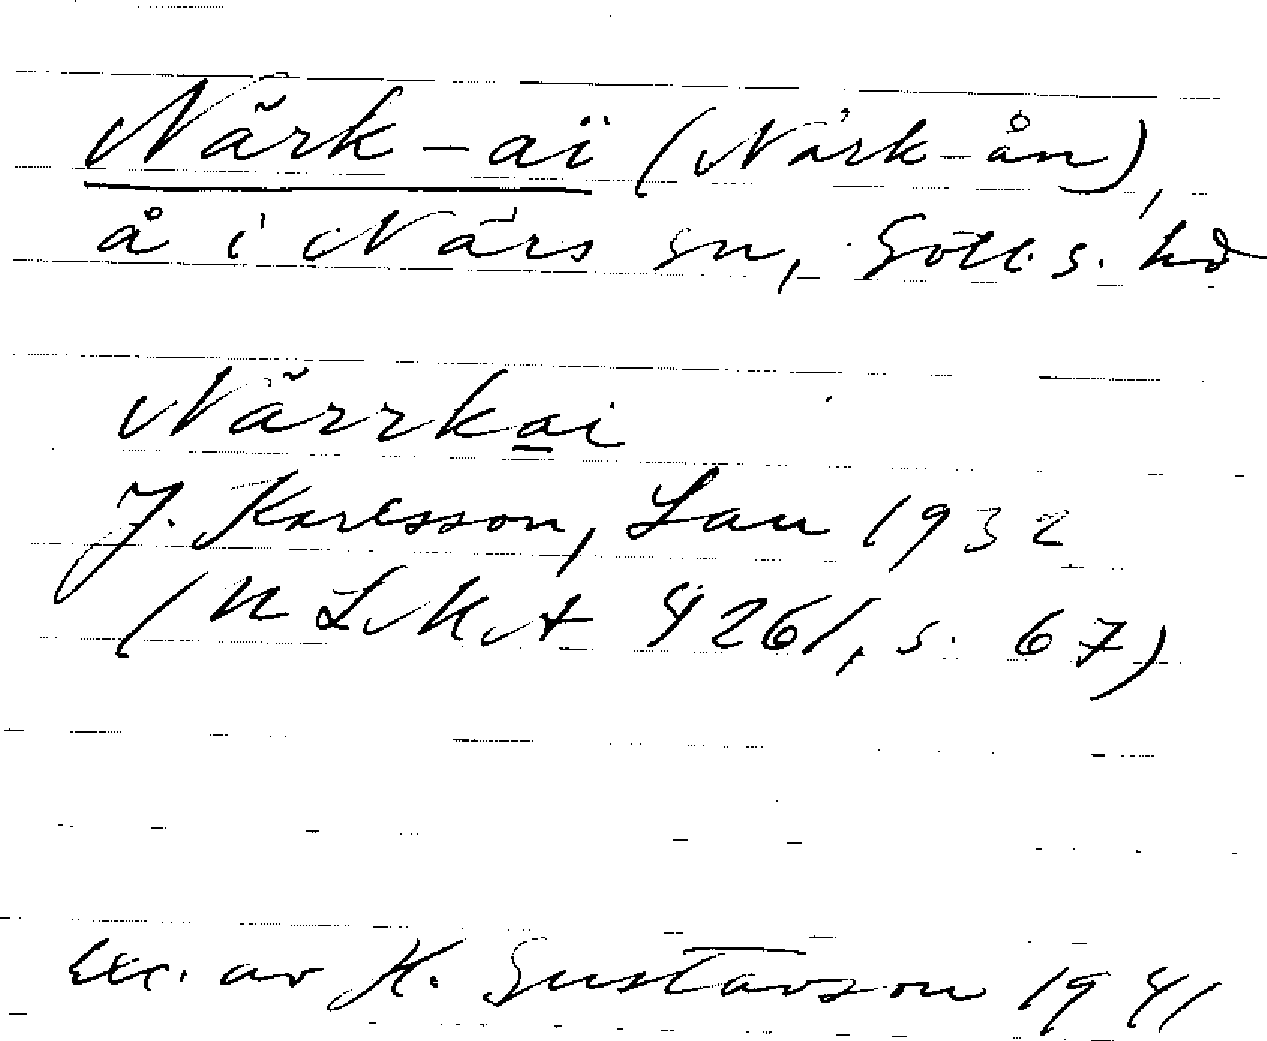 Närk-aï (Närk-ån),
å i När s sn, Gotl. s. hd
Närrkai
J. Karlsson, Lau 1932
(ULMA 4261, s. 67)
Exc. av H. Gustavson 1941